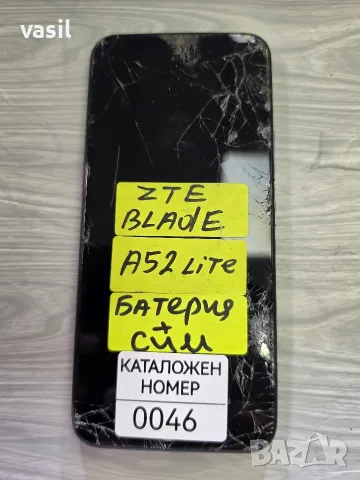 vasil
ZTE
BLADE
A52 LiTe
БАТЕРИЯ
+
СИМ
КАТАЛОЖЕН
НОМЕР
0046
BAZAR